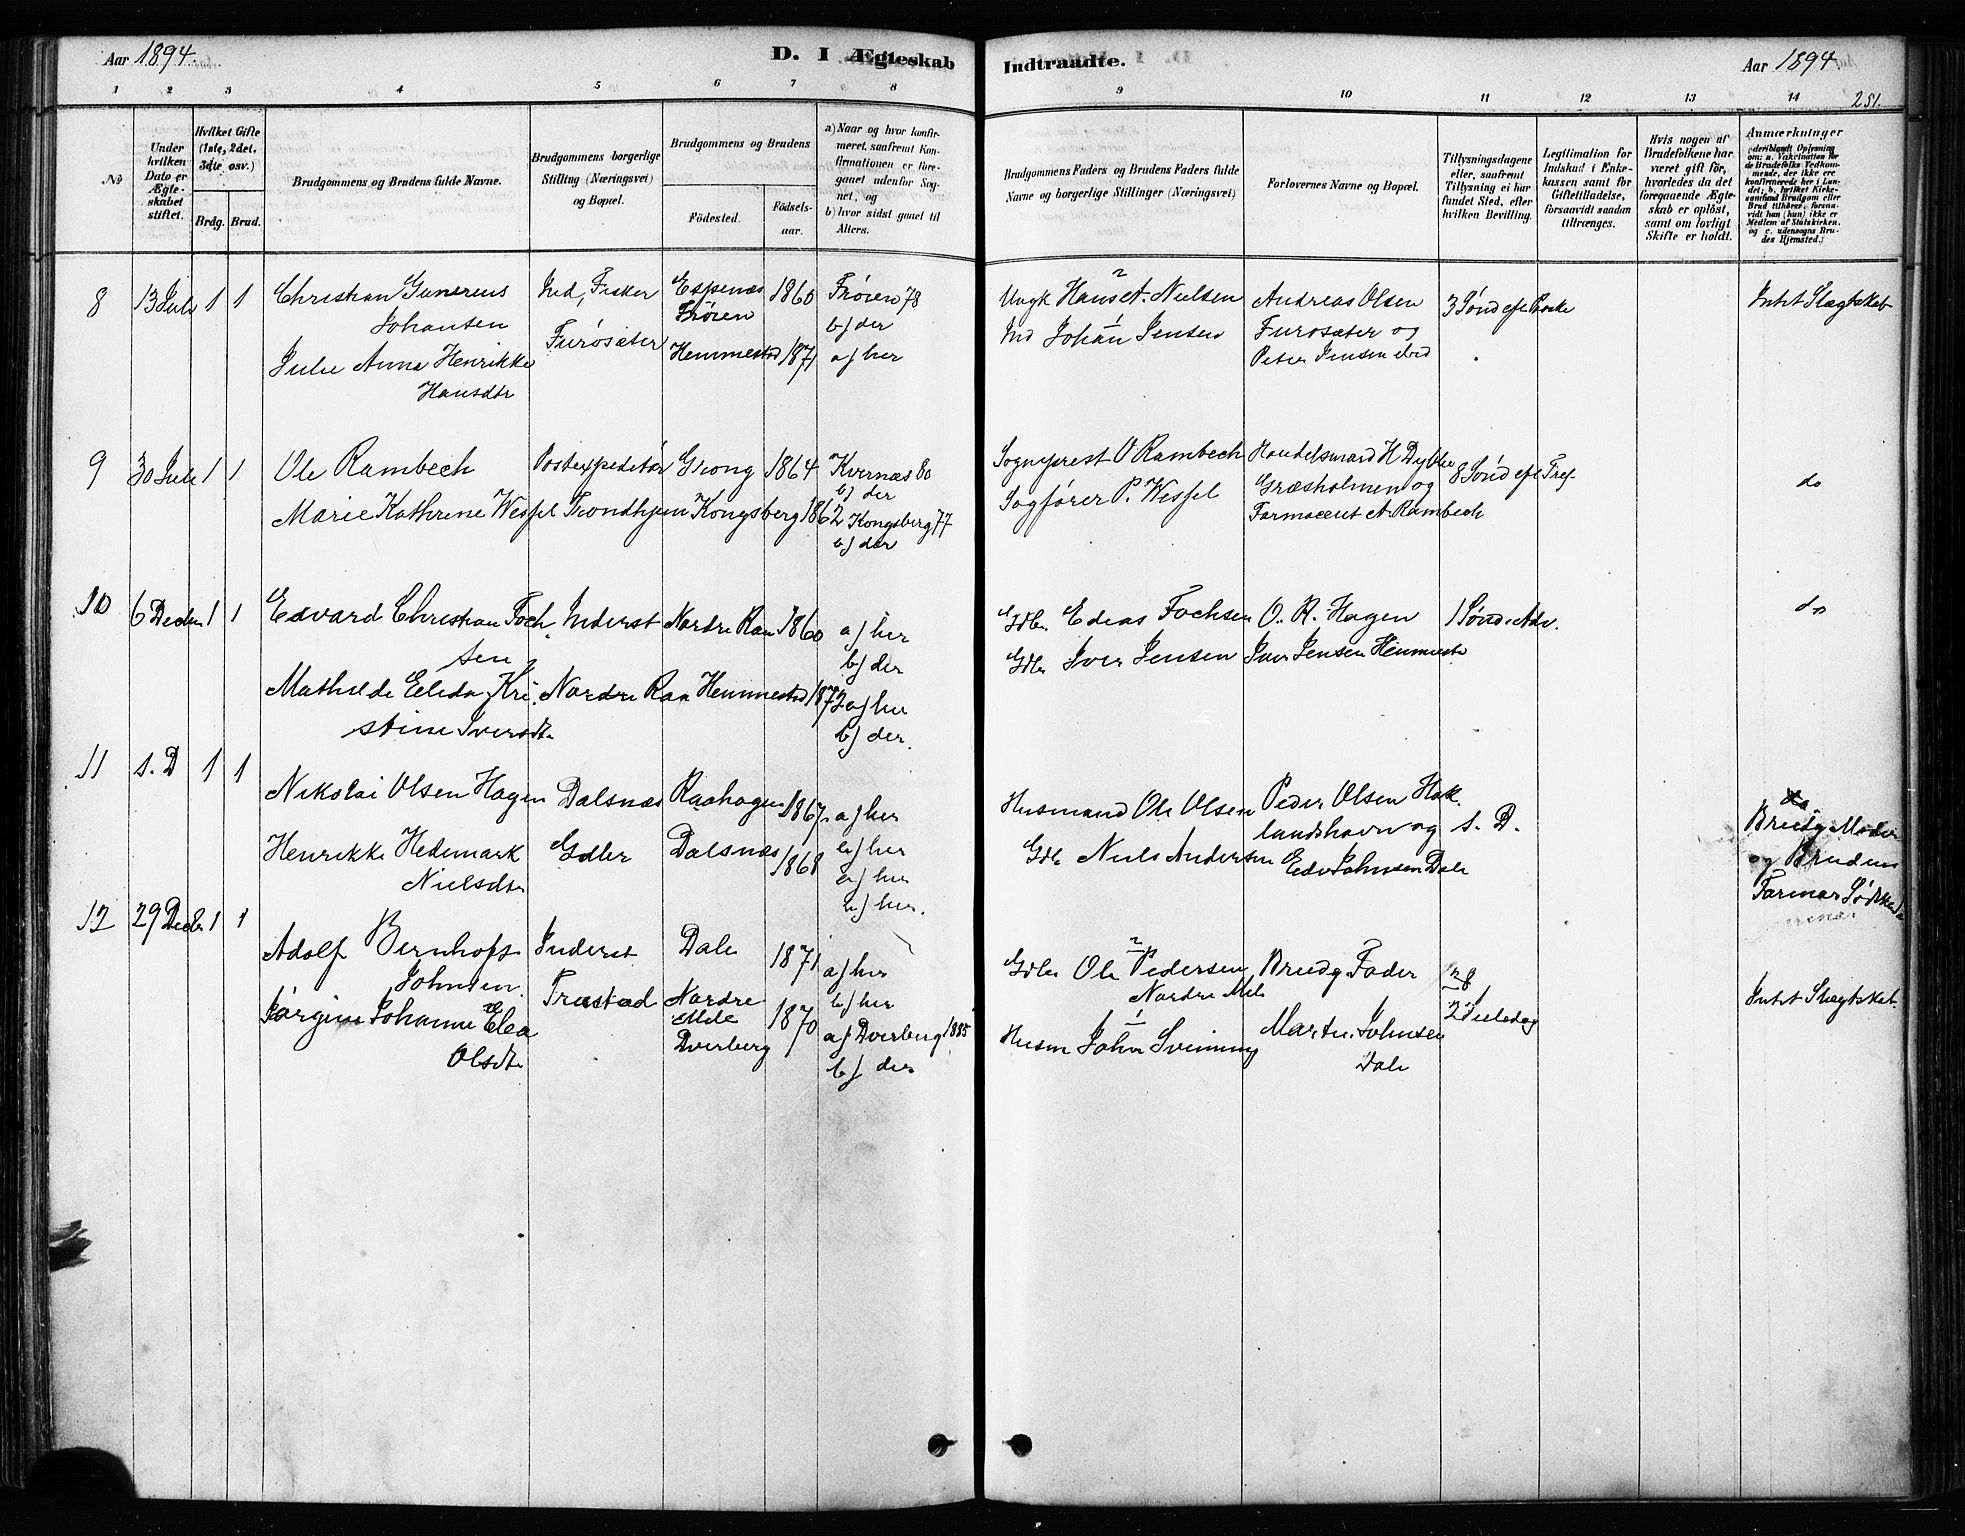 Aar 1894.
D. I Ægteskab
Indtraadte.
Aar 1894.
1 2 3 4 5 6 7 8
9 10 11 12 13 14
251.
№
Under hvilken Dato er Ægteskabet stiftet.
Hvilket Gifte (1ste, 2det, 3die osv.)
Brdg. Brud.
Brudgommens og Brudens fulde Navne.
Brudgommens borgerlige Stilling (Næringsvei) og Bopæl.
Brudgommens og Brudens
Födested.
Födsels-aar.
a) Naar og hvor konfirmeret, saafremt Konfirmationen er foregaaet udenfor Sognet, og
b) hvor sidst gaaet til Alters.
Brudgommens Faders og Brudens Faders fulde Navne og borgerlige Stillinger (Næringsvei)
Forlovernes Navne og Bopæl.
Tillysningsdagene eller, saafremt Tillysning ei har fundet Sted, efter hvilken Bevilling.
Legitimation for Indskud i Enkekassen samt for Giftetilladelse, forsaavidt saadan tiltrænges.
Hvis nogen af Brudefolkene har været gift før, hvorledes da det foregaaende Ægteskab er oplöst, samt om lovligt Skifte er holdt.
Anmærkninger (deriblandt Oplysning om: a. Vakcination for de Brudefolks Vedkommende, der ikke ere konfirmerede her i Landet; b. hvilket Kirkesamfund Brudgom eller Brud tilhörer, forsaavidt han (hun) ikke er Medlem af Statskirken. og c. udensogns Brudes Hjemsted.)
8 13 Juli 1 1
Christian Gunerius
Johansen
Ind, Fisker
Furøsæter
Espenæs
Frøien
1860
Frøien 78
b) der
Julie Anna Henrikke
Hansdtr
Hemmestad 1871
a) her
Ungk Hans A. Nielsen
2
Ind Johan Jensen
1
Andreas Olsen
Furøsæter og
Peter Jensen
3 Sønd eft Paaske
Intet Slægtskab
9 30 Juli 1 1
Ole Rambech
Postexpeditør
Grong 1864
Kvernæs 80
b) der
Marie Kathrine Wessel
Trondhjem
Kongsberg 1862
Kongsberg 77
b) der
Sogneprest O Rambech
Sagfører P. Wessel
Handelsmand H
Græsholmen og
Farmaceut A. Rambech
8 Sønd eft Tref.
do
10 6 Decbr 1 1
Edvard Christian Foch
sen
Inderst
Nordre Raa
Nordre Raa 1860
a) her
b) der
Mathilde Elida Kri
stine Iversdtr
Hemmestad 1872
a) her
b) der.
Gdbr. Edias Fochsen
Gdbr Iver Jensen
O. R. Hagen
Iver Jensen Hemmest
1 Sønd i Adv.
do
11 s. D 1 1
Nikolai Olsen Hagen
Dalsnæs
Gdbr
Raahagen 1867
a) her
b) her
Henrikke Hedemark
Nielsdtr
Dalsnæs 1868
a) her
b) her.
Husmand Ole Olsen
Gdb Niels Andersen
Peder Olsen Hak
landshavn og
Johnsen Dale
s. D.
Brudg Moder
og Brudens
Farmor Sødskende
12 29 Decbr 1 1
Adolf Bernhoft
Johnsen
Inderst
Trestad
Dale 1871
a) her
b) her
Jørgine Johanne Elea
Olsdtr
Nordre
Mele
Dverberg
1870
a) Dverberg 1885
b) der
Gdbr Ole Pedersen
2
Nordre Mel
Husm John Svinning
1
Brudg Fader
Martin Johnsen
Dale
2 Juledag
Intet Slægtskab.